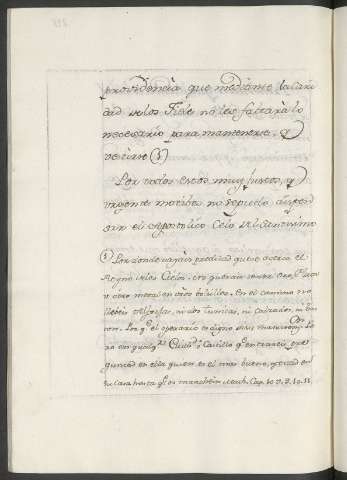 providencia que mediante la Cari
dad de los Fieles no les faltará lo
necesario para mantenerse, y
vestirse (1)
Por todos estos muy justos, y
urgentes motivos no se pudo dispen
sar el Apostolico Celo del Santisimo
(1) Por donde vayais predicad que se acerca el
Reyno de los Cielos. no querais tener oro, plata
u otro metal en vros bolsillos. En el camino no
lleveis Alforjas, ni dos tunicas, ni calzados, ni bas
ton. Por qe el operario es digno de su manutencion. Pe
ro en qualqa Ciudad o Castillo qe entrareis, pre
guntad en ella quien es el mas bueno, y estad en
su casa hasta qe os marcheis. Math. Cap. 10. 7. 9. 10. 11